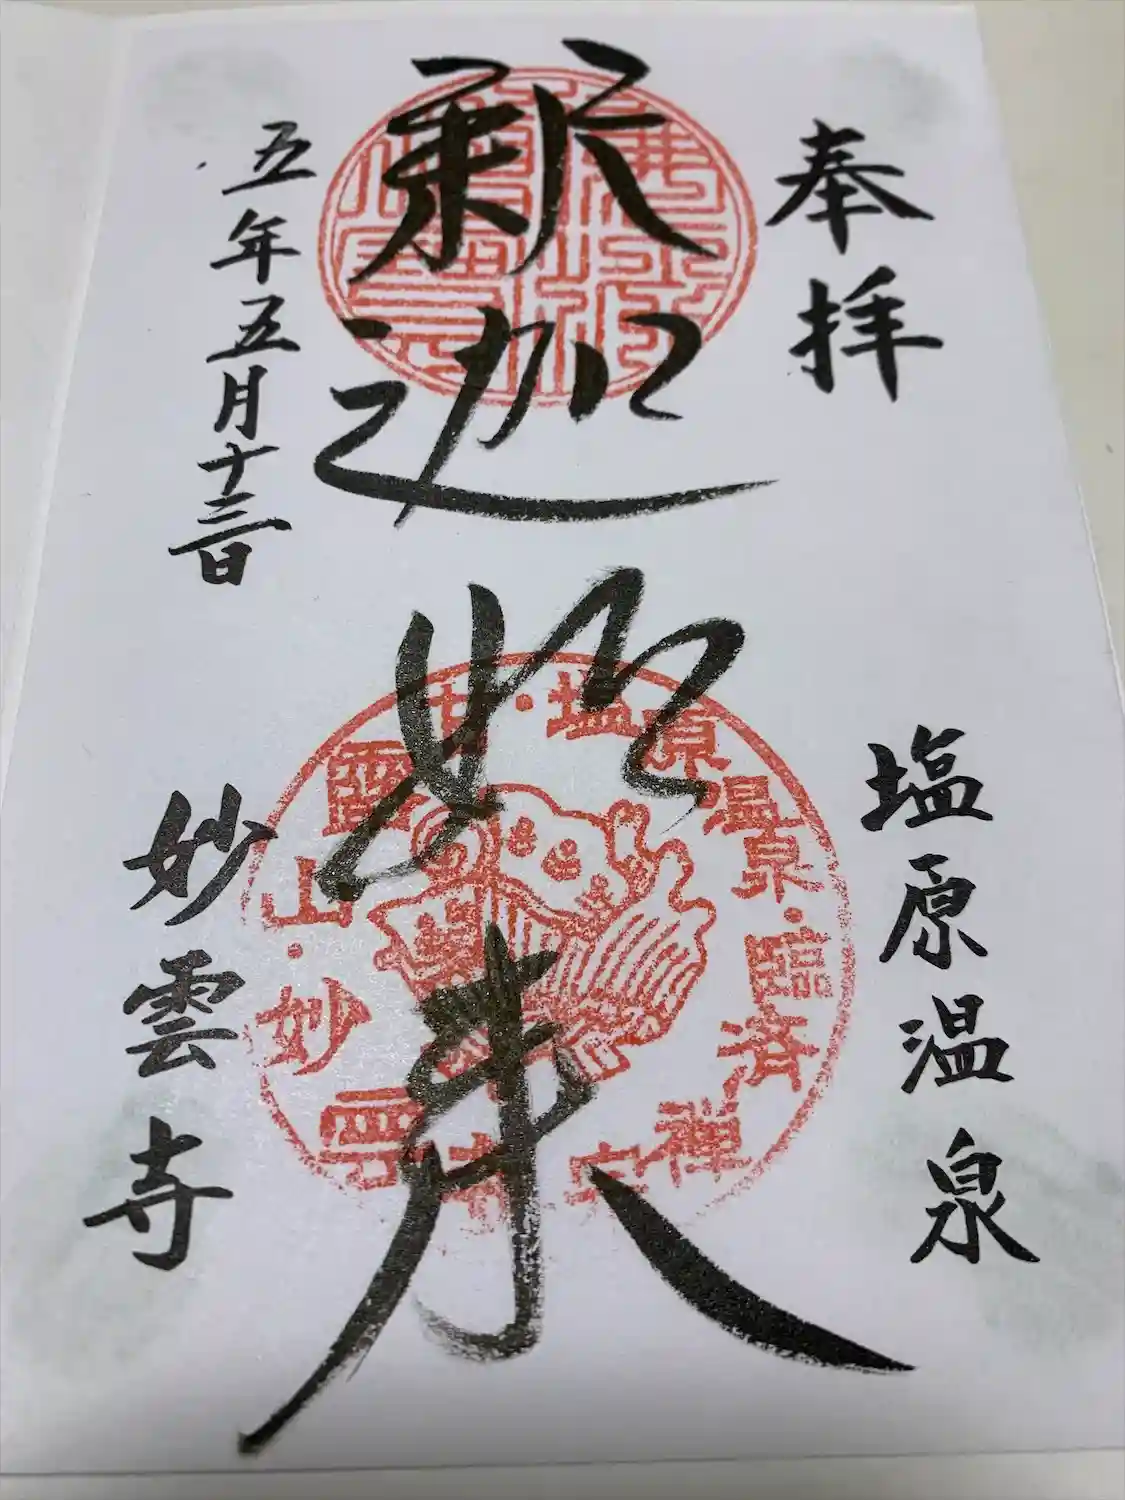 奉拝
塩原温泉
釈迦
如来
五年五月十三日
妙雲寺
塩原温泉・臨済禅宗
甘露山・妙雲寺